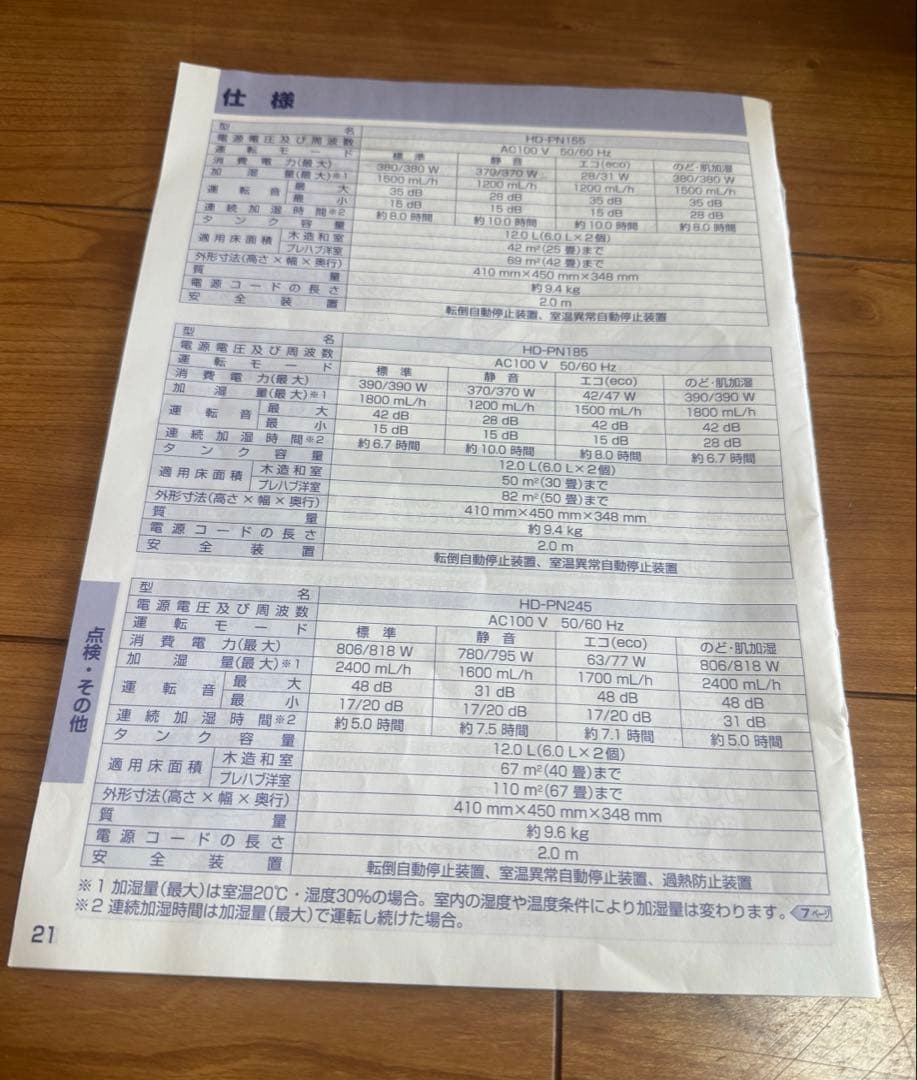 仕様
型名 HD-PN155
電源電圧及び周波数 AC100 V 50/60 Hz
運転モード 標準 静音 エコ(eco) のど・肌加湿
消費電力(最大) 380/380 W 370/370 W 28/31 W 380/380 W
加湿量(最大)※1 1500 mL/h 1200 mL/h 1200 mL/h 1500 mL/h
運転音 最大 35 dB 28 dB 35 dB 35 dB
最小 15 dB 15 dB 15 dB 28 dB
連続加湿時間※2 約8.0 時間 約10.0 時間 約10.0 時間 約8.0 時間
タンク容量 12.0 L(6.0 L×2個)
適用床面積 木造和室 42 m²(25 畳)まで
プレハブ洋室 69 m²(42 畳)まで
外形寸法(高さ×幅×奥行) 410 mm×450 mm×348 mm
質量 約9.4 kg
電源コードの長さ 2.0 m
安全装置 転倒自動停止装置、室温異常自動停止装置
型名 HD-PN185
電源電圧及び周波数 AC100 V 50/60 Hz
運転モード 標準 静音 エコ(eco) のど・肌加湿
消費電力(最大) 390/390 W 370/370 W 42/47 W 390/390 W
加湿量(最大)※1 1800 mL/h 1200 mL/h 1500 mL/h 1800 mL/h
運転音 最大 42 dB 28 dB 42 dB 42 dB
最小 15 dB 15 dB 15 dB 28 dB
連続加湿時間※2 約6.7 時間 約10.0 時間 約8.0 時間 約6.7 時間
タンク容量 12.0 L(6.0 L×2個)
適用床面積 木造和室 50 m²(30 畳)まで
プレハブ洋室 82 m²(50 畳)まで
外形寸法(高さ×幅×奥行) 410 mm×450 mm×348 mm
質量 約9.4 kg
電源コードの長さ 2.0 m
安全装置 転倒自動停止装置、室温異常自動停止装置
型名 HD-PN245
電源電圧及び周波数 AC100 V 50/60 Hz
運転モード 標準 静音 エコ(eco) のど・肌加湿
消費電力(最大) 806/818 W 780/795 W 63/77 W 806/818 W
加湿量(最大)※1 2400 mL/h 1600 mL/h 1700 mL/h 2400 mL/h
運転音 最大 48 dB 31 dB 48 dB 48 dB
最小 17/20 dB 17/20 dB 17/20 dB 31 dB
連続加湿時間※2 約5.0 時間 約7.5 時間 約7.1 時間 約5.0 時間
タンク容量 12.0 L(6.0 L×2個)
適用床面積 木造和室 67 m²(40 畳)まで
プレハブ洋室 110 m²(67 畳)まで
外形寸法(高さ×幅×奥行) 410 mm×450 mm×348 mm
質量 約9.6 kg
電源コードの長さ 2.0 m
安全装置 転倒自動停止装置、室温異常自動停止装置、過熱防止装置
※1 加湿量(最大)は室温20℃・湿度30%の場合。室内の湿度や温度条件により加湿量は変わります。 7ページ
※2 連続加湿時間は加湿量(最大)で運転し続けた場合。
点検・その他
21